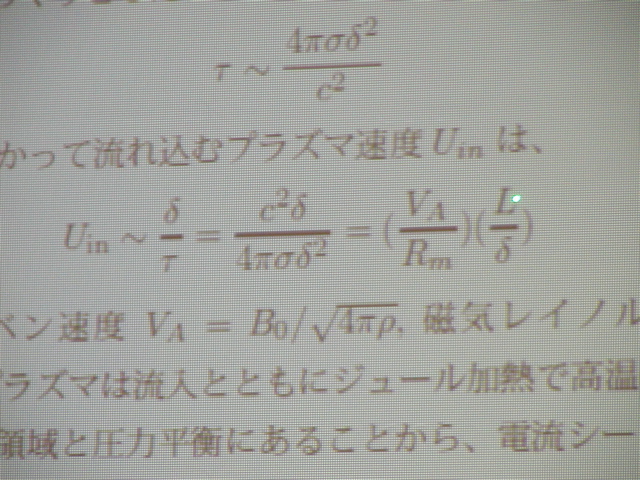 τ ∼ 4πσδ² / c²
かって流れ込むプラズマ速度 U_in は、
U_in ∼ δ/τ = c²δ / 4πσδ² = (V_A / R_m)(L / δ)
ベン速度 V_A = B₀/√4πρ, 磁気レイノル
プラズマは流入とともにジュール加熱で高温
領域と圧力平衡にあることから、電流シー